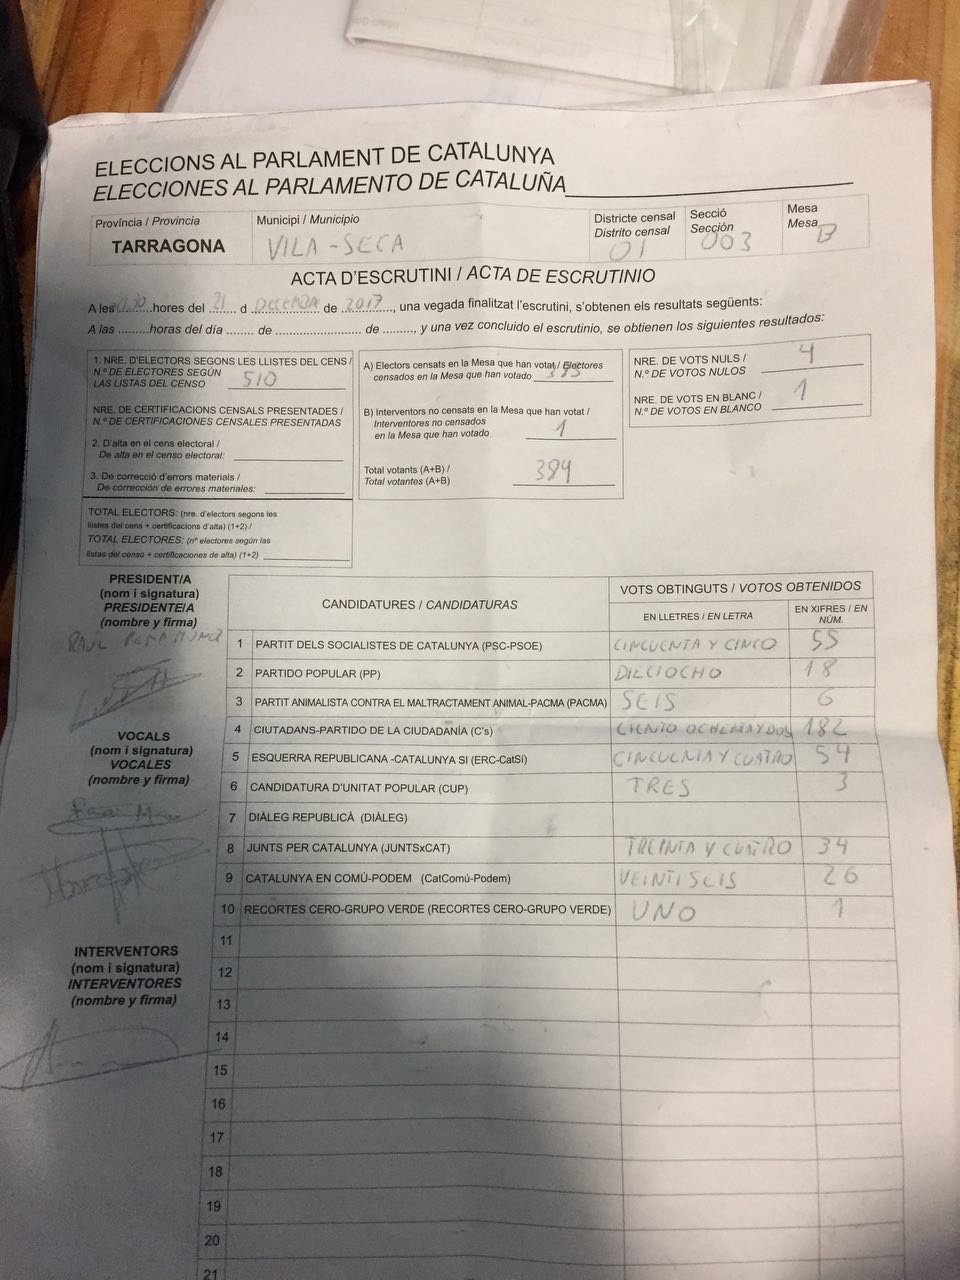 ELECCIONS AL PARLAMENT DE CATALUNYA
ELECCIONES AL PARLAMENTO DE CATALUÑA
Província / Provincia
TARRAGONA
Municipi / Municipio
VILA-SECA
Districte censal
Distrito censal
01
Secció
Sección
003
Mesa
Mesa
B
ACTA D'ESCRUTINI / ACTA DE ESCRUTINIO
A les hores del 21 d de 2017, una vegada finalitzat l'escrutini, s'obtenen els resultats següents:
A las .........horas del día ........ de ......................... de ........., y una vez concluido el escrutinio, se obtienen los siguientes resultados:
1. NRE. D'ELECTORS SEGONS LES LLISTES DEL CENS /
N.º DE ELECTORES SEGÚN
LAS LISTAS DEL CENSO 510
NRE. DE CERTIFICACIONS CENSALS PRESENTADES /
N.º DE CERTIFICACIONES CENSALES PRESENTADAS
2. D'alta en el cens electoral /
De alta en el censo electoral:
3. De correcció d'errors materials /
De corrección de errores materiales:
TOTAL ELECTORS: (nre. d'electors segons les
llistes del cens + certificacions d'alta) (1+2) /
TOTAL ELECTORES: (nº electores según las
listas del censo + certificaciones de alta) (1+2)
A) Electors censats en la Mesa que han votat / Electores
censados en la Mesa que han votado 383
B) Interventors no censats en la Mesa que han votat /
Interventores no censados
en la Mesa que han votado 1
Total votants (A+B) /
Total votantes (A+B) 384
NRE. DE VOTS NULS /
N.º DE VOTOS NULOS 4
NRE. DE VOTS EN BLANC /
N.º DE VOTOS EN BLANCO 1
PRESIDENT/A
(nom i signatura)
PRESIDENTE/A
(nombre y firma)
RAÚL
VOCALS
(nom i signatura)
VOCALES
(nombre y firma)
INTERVENTORS
(nom i signatura)
INTERVENTORES
(nombre y firma)
CANDIDATURES / CANDIDATURAS
VOTS OBTINGUTS / VOTOS OBTENIDOS
EN LLETRES / EN LETRA
EN XIFRES / EN
NÚM.
1 PARTIT DELS SOCIALISTES DE CATALUNYA (PSC-PSOE) CINCUENTA Y CINCO 55
2 PARTIDO POPULAR (PP) DIECIOCHO 18
3 PARTIT ANIMALISTA CONTRA EL MALTRACTAMENT ANIMAL-PACMA (PACMA) SEIS 6
4 CIUTADANS-PARTIDO DE LA CIUDADANÍA (C's) CIENTO OCHENTA Y DOS 182
5 ESQUERRA REPUBLICANA -CATALUNYA SI (ERC-CatSí) CINCUENTA Y CUATRO 54
6 CANDIDATURA D'UNITAT POPULAR (CUP) TRES 3
7 DIÀLEG REPUBLICÀ (DIÀLEG)
8 JUNTS PER CATALUNYA (JUNTSxCAT) TREINTA Y CUATRO 34
9 CATALUNYA EN COMÚ-PODEM (CatComú-Podem) VEINTISEIS 26
10 RECORTES CERO-GRUPO VERDE (RECORTES CERO-GRUPO VERDE) UNO 1
11
12
13
14
15
16
17
18
19
20
21